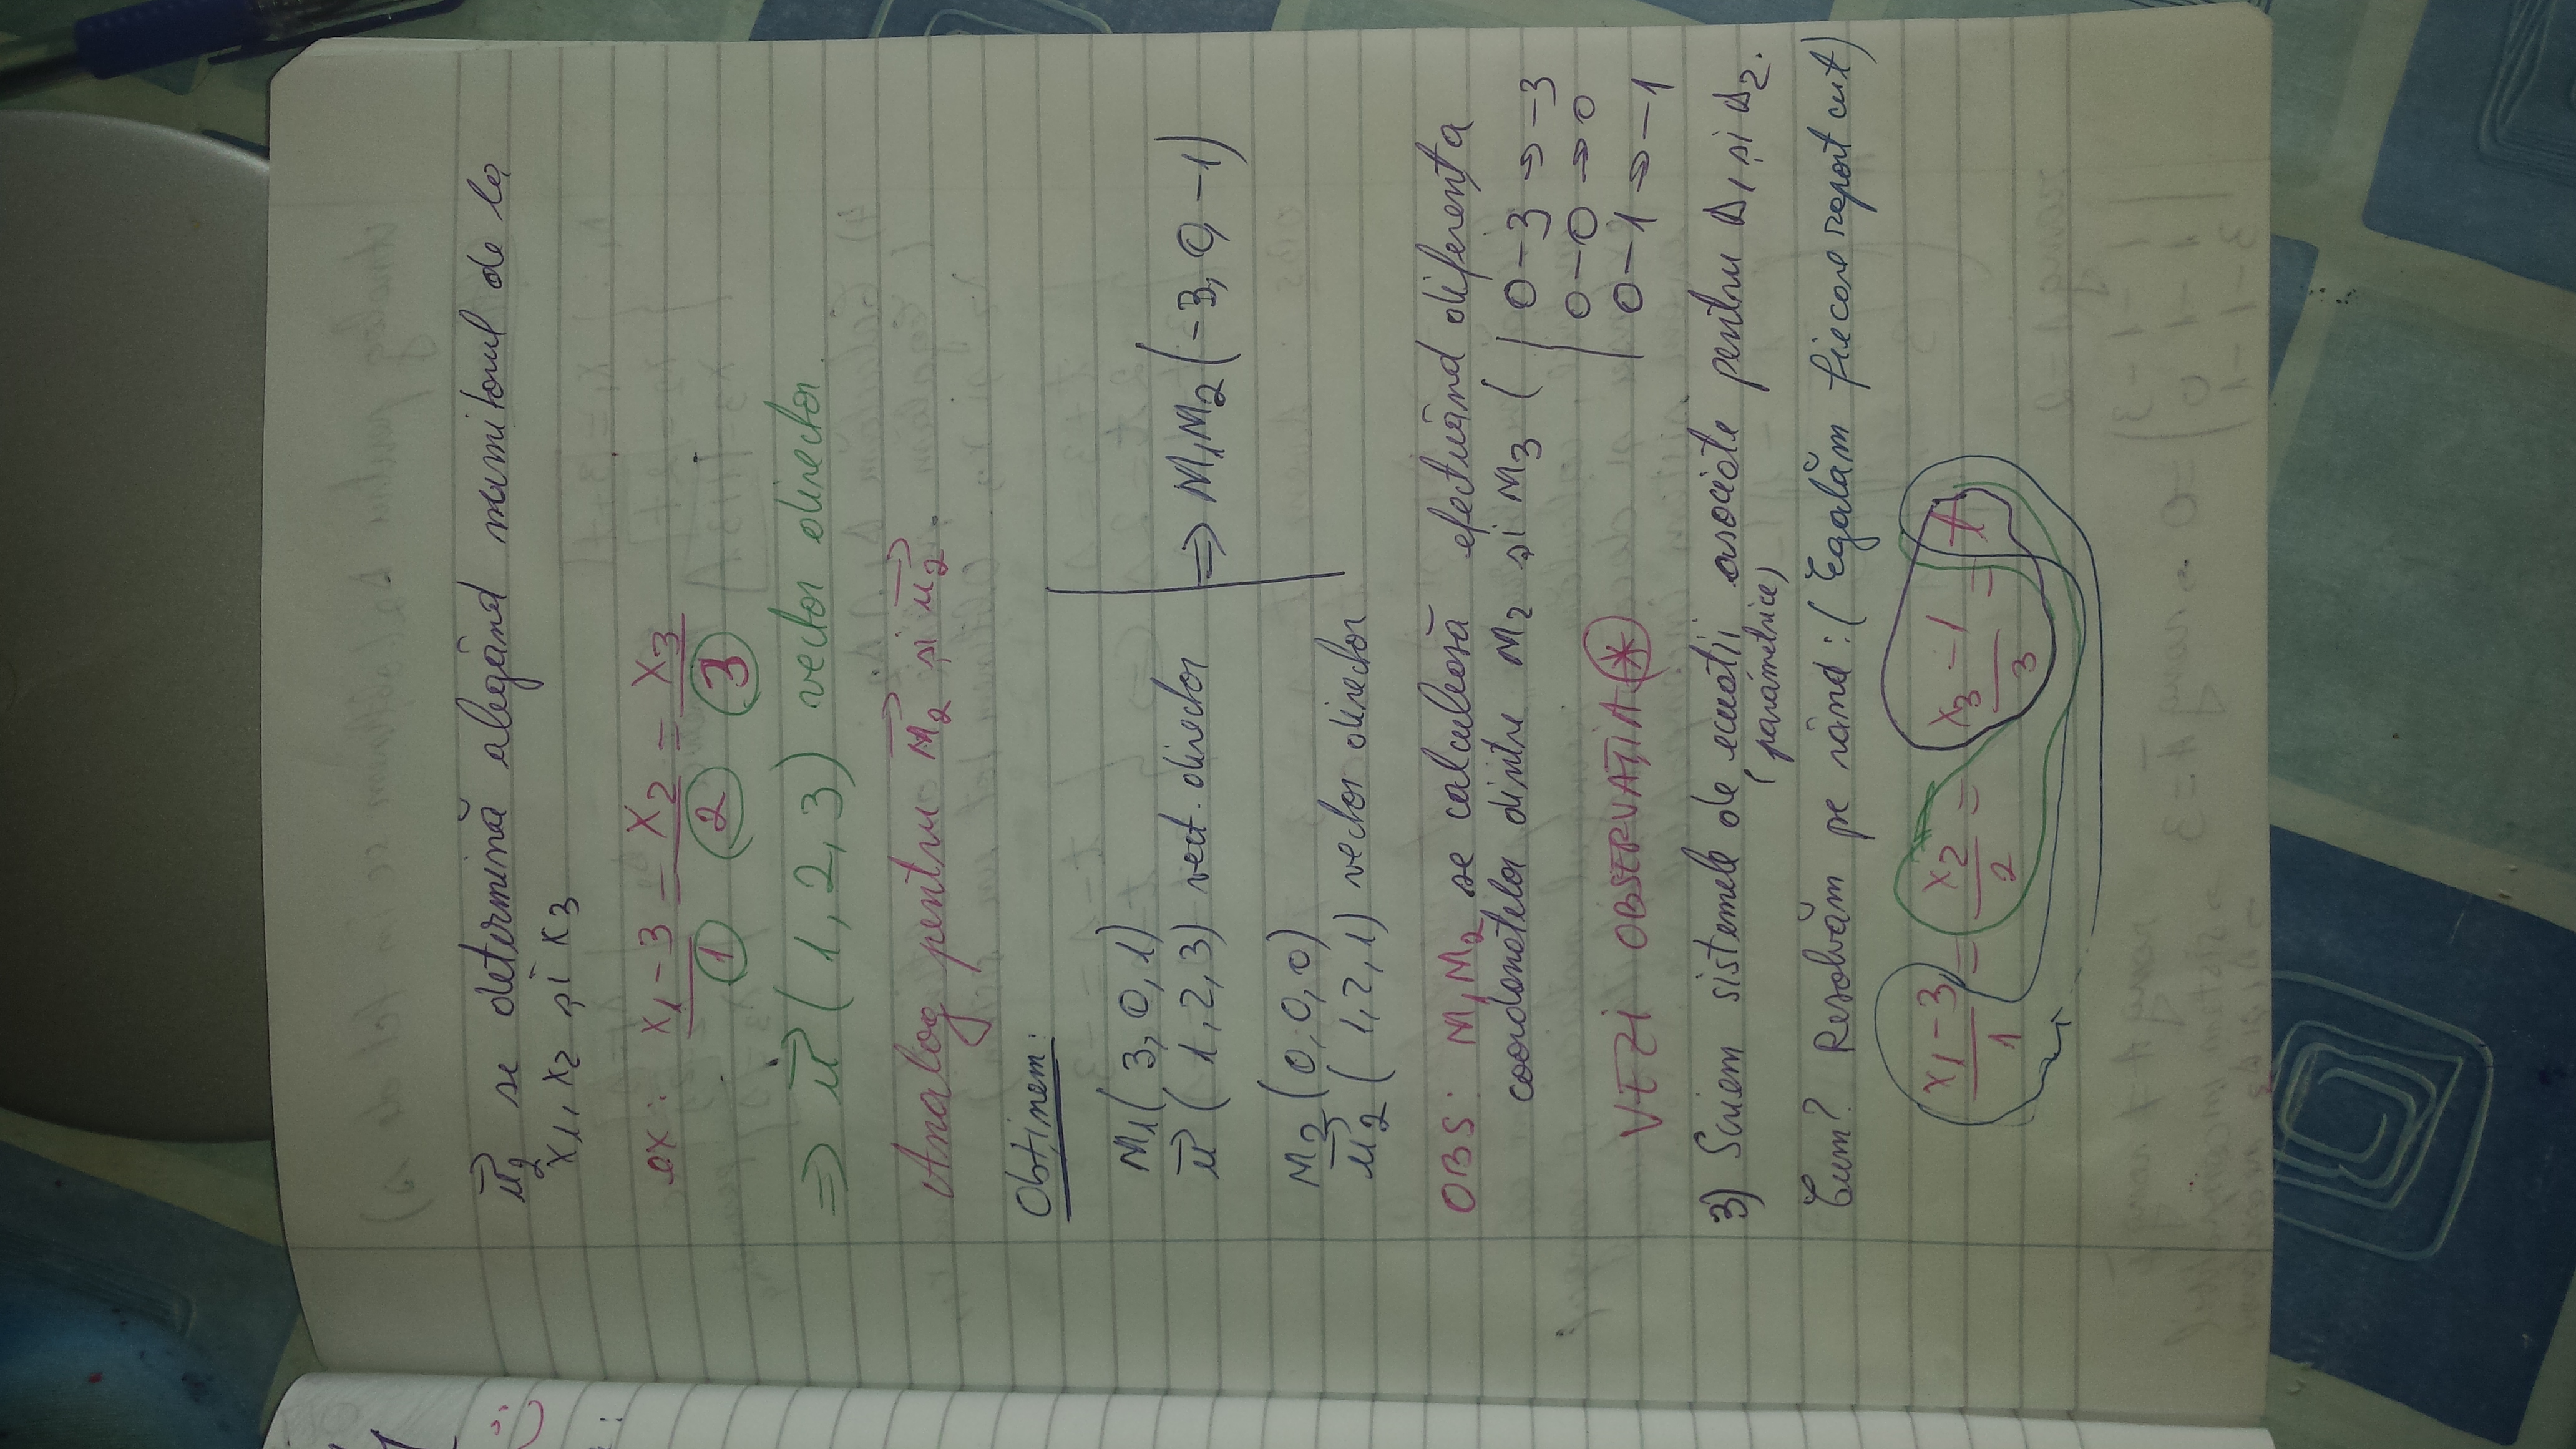 u₂ se determină alegând numitorul de la
x₁, x₂ și x₃
ex: (x₁-3)/1 = x₂/2 = x₃/3
⇒ u (1, 2, 3) vector director.
Analog pentru M₂ și u₂.
Obținem:
M₁(3, 0, 1)
u (1, 2, 3) vect. director
⇒ M₁M₂(-3, 0, -1)
M₂(0, 0, 0)
u₂ (1, 2, 1) vector director
OBS: M₁M₂ se calculează efectuând diferența
coordonatelor dintre M₂ și M₃ ( | 0-3 → -3
0-0 → 0
0-1 → -1
VEZI OBSERVAȚIA *
3) Scriem sistemele de ecuații asociate pentru Δ₁ și Δ₂.
(parametrice)
Cum? Rezolvăm pe rând: (Egalăm fiecare raport cu t)
(x₁-3)/1 = x₂/2 = (x₃-1)/3 = t